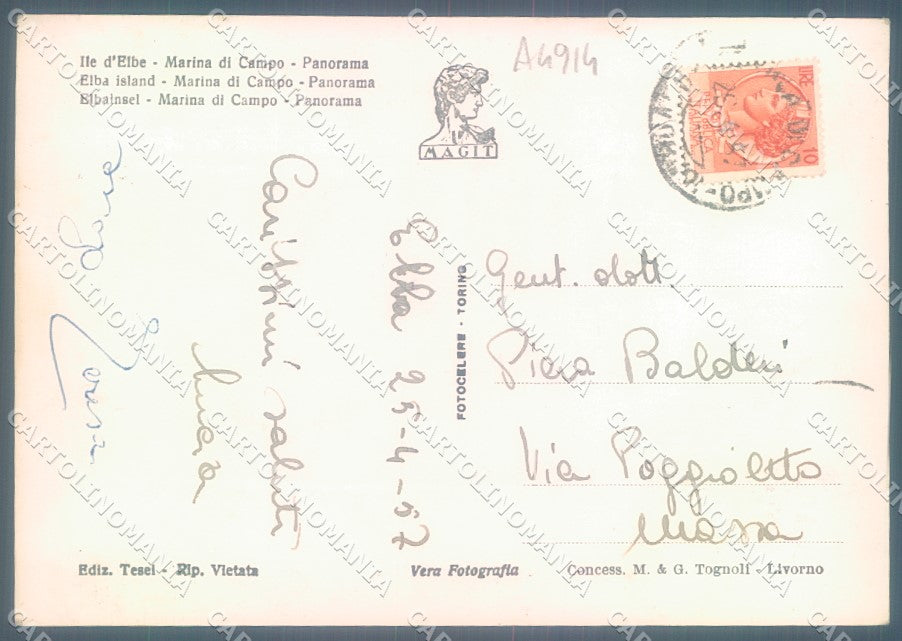 Ile d'Elbe - Marina di Campo - Panorama
Elba island - Marina di Campo - Panorama
Elbainsel - Marina di Campo - Panorama
MAGIT
A4914
LIRE
10
Elba 25-4-57
Carissimi saluti
Gent. dott
Piera Balderi
Via Poggioletto
Massa
FOTOCELERE - TORINO
Ediz. Tesei - Rip. Vietata
Vera Fotografia
Concess. M. & G. Tognoli - Livorno
CARTOLINOMANIA